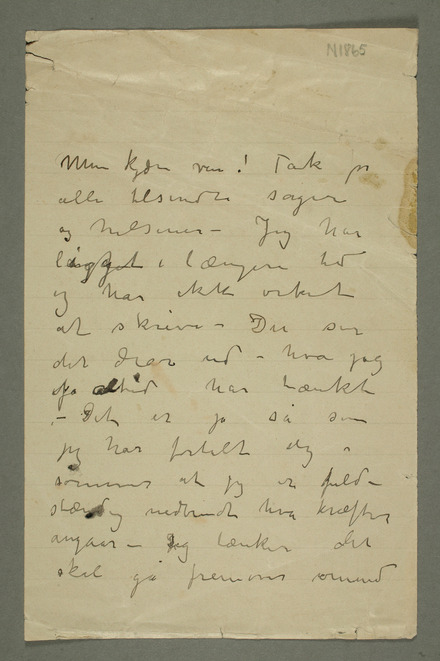 N1865
Min kjære ven! Tak for
alle tilsendte sager
og hilsener – Jeg har
ligget i længere tid
og har ikke orket
at skrive – Du ser
det drar ud – hva jeg
jo altid har tænkt
– Det er jo så som
jeg har fortalt dig
sommer at jeg er fuld-
stændig nedbrudt hva kræfter
angaar – Jeg tænker det
skal gå fremover